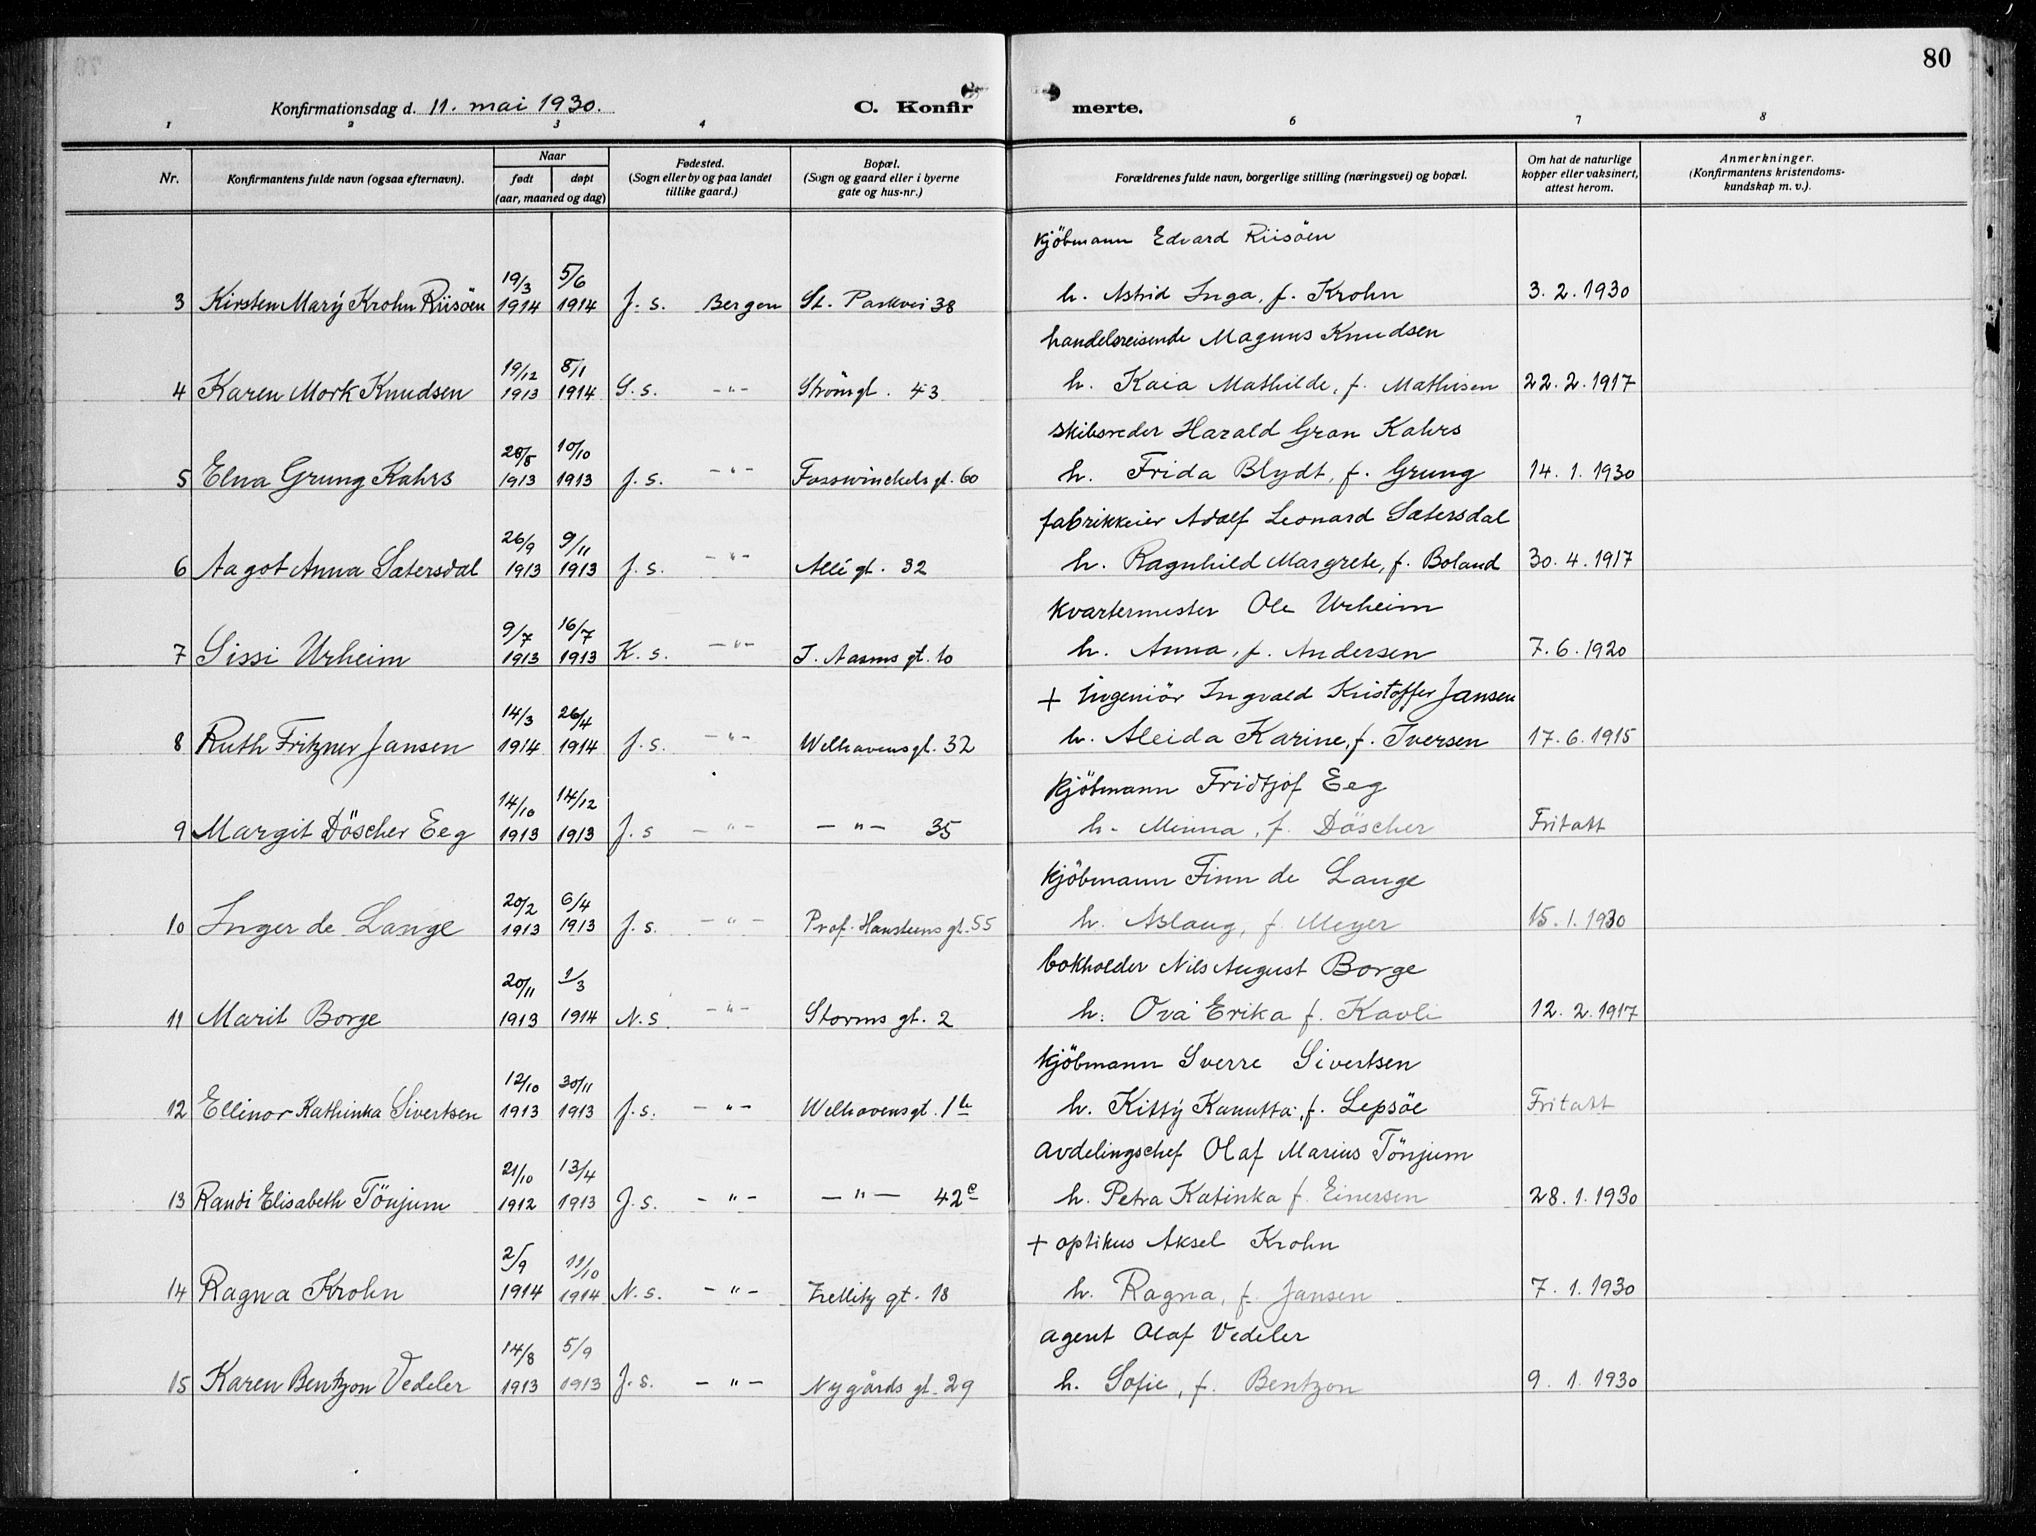 80
Konfirmationsdag d. 11. mai 1930.
C. Konfirmerte.
1 2 3 4 6 7 8
Nr.
Konfirmantens fulde navn (ogsaa efternavn).
Naar
født døpt
(aar, maaned og dag)
Fødested.
(Sogn eller by og paa landet
tillike gaard.)
Bopæl.
(Sogn og gaard eller i byerne
gate og hus-nr.)
Forældrenes fulde navn, borgerlige stilling (næringsvei) og bopæl.
Om hat de naturlige
kopper eller vaksinert,
attest herom.
Anmerkninger.
(Konfirmantens kristendoms-
kundskap m. v.).
kjöbmann Edvard Riisöen
19/3 5/6
3 Kirsten Mary Krohn Riisöen 1914 1914 J. s. Bergen St. Parkvei 38 h. Astrid Inga, f. Krohn 3. 2. 1930
handelsreisende Magnus Knudsen
19/12 8/1
4 Karen Mork Knudsen 1913 1914 S. s. -"- Strömgt. 43 h. Kaia Mathilde, f. Mathisen 22. 2. 1917
skibsreder Harald Gran Kahrs
28/8 10/10
5 Elna Grung Kahrs 1913 1913 J. s. -"- Fosswinckels gt. 60 h. Frida Blydt, f. Grung 14. 1. 1930
fabrikkeier Adolf Leonard Sætersdal
26/9 9/11
6 Aagot Anna Sætersdal 1913 1913 J. s. -"- Allégt. 32 h. Ragnhild Margrete, f. Boland 30. 4. 1917
kvartermester Ole Urheim
9/7 16/7
7 Sissi Urheim 1913 1913 K. s. -"- I. Aasens gt. 10 h. Anna, f. Andersen 7. 6. 1920
+ ingeniör Ingvald Kristoffer Jansen
14/3 26/4
8 Ruth Fritzner Jansen 1914 1914 J. s. -"- Welhavensgt. 32 h. Aleida Karine, f. Iversen 17. 6. 1915
kjöbmann Fridtjof Eeg
14/10 14/12
9 Margit Döscher Eeg 1913 1913 J. s -"- -"- 35 h. Minna, f. Döscher Fritatt
kjöbmann Finn de Lange
20/2 6/4
10 Inger de Lange 1913 1913 J. s. -"- Prof. Hansteens gt. 55 h. Aslaug, f. Meyer 15. 1. 1930
bokholder Nils August Borge
20/11 1/3
11 Marit Borge 1913 1914 N. s. -"- Storms gt. 2 h. Ova Erika f. Kavli 12. 2. 1917
kjöbmann Sverre Sivertsen
12/10 30/11
12 Ellinor Kathinka Sivertsen 1913 1913 J. s. -"- Welhavensgt. 1b h. Kitty Kanutta, f. Lepsöe Fritatt
avdelingschef Olaf Marius Tönjum
21/10 13/4
13 Randi Elisabeth Tönjum 1912 1913 J. s. -"- -"- 42c h. Petra Katinka f. Einersen 28. 1. 1930
+ optikus Aksel Krohn
2/9 11/10
14 Ragna Krohn 1914 1914 N. s. -"- Zellitz gt. 18 h. Ragna, f. Jansen 7. 1. 1930
agent Olaf Vedeler
14/8 5/9
15 Karen Bentzon Vedeler 1913 1913 J. s. -"- Nygårds gt. 29 h. Sofie, f. Bentzon 9. 1. 1930